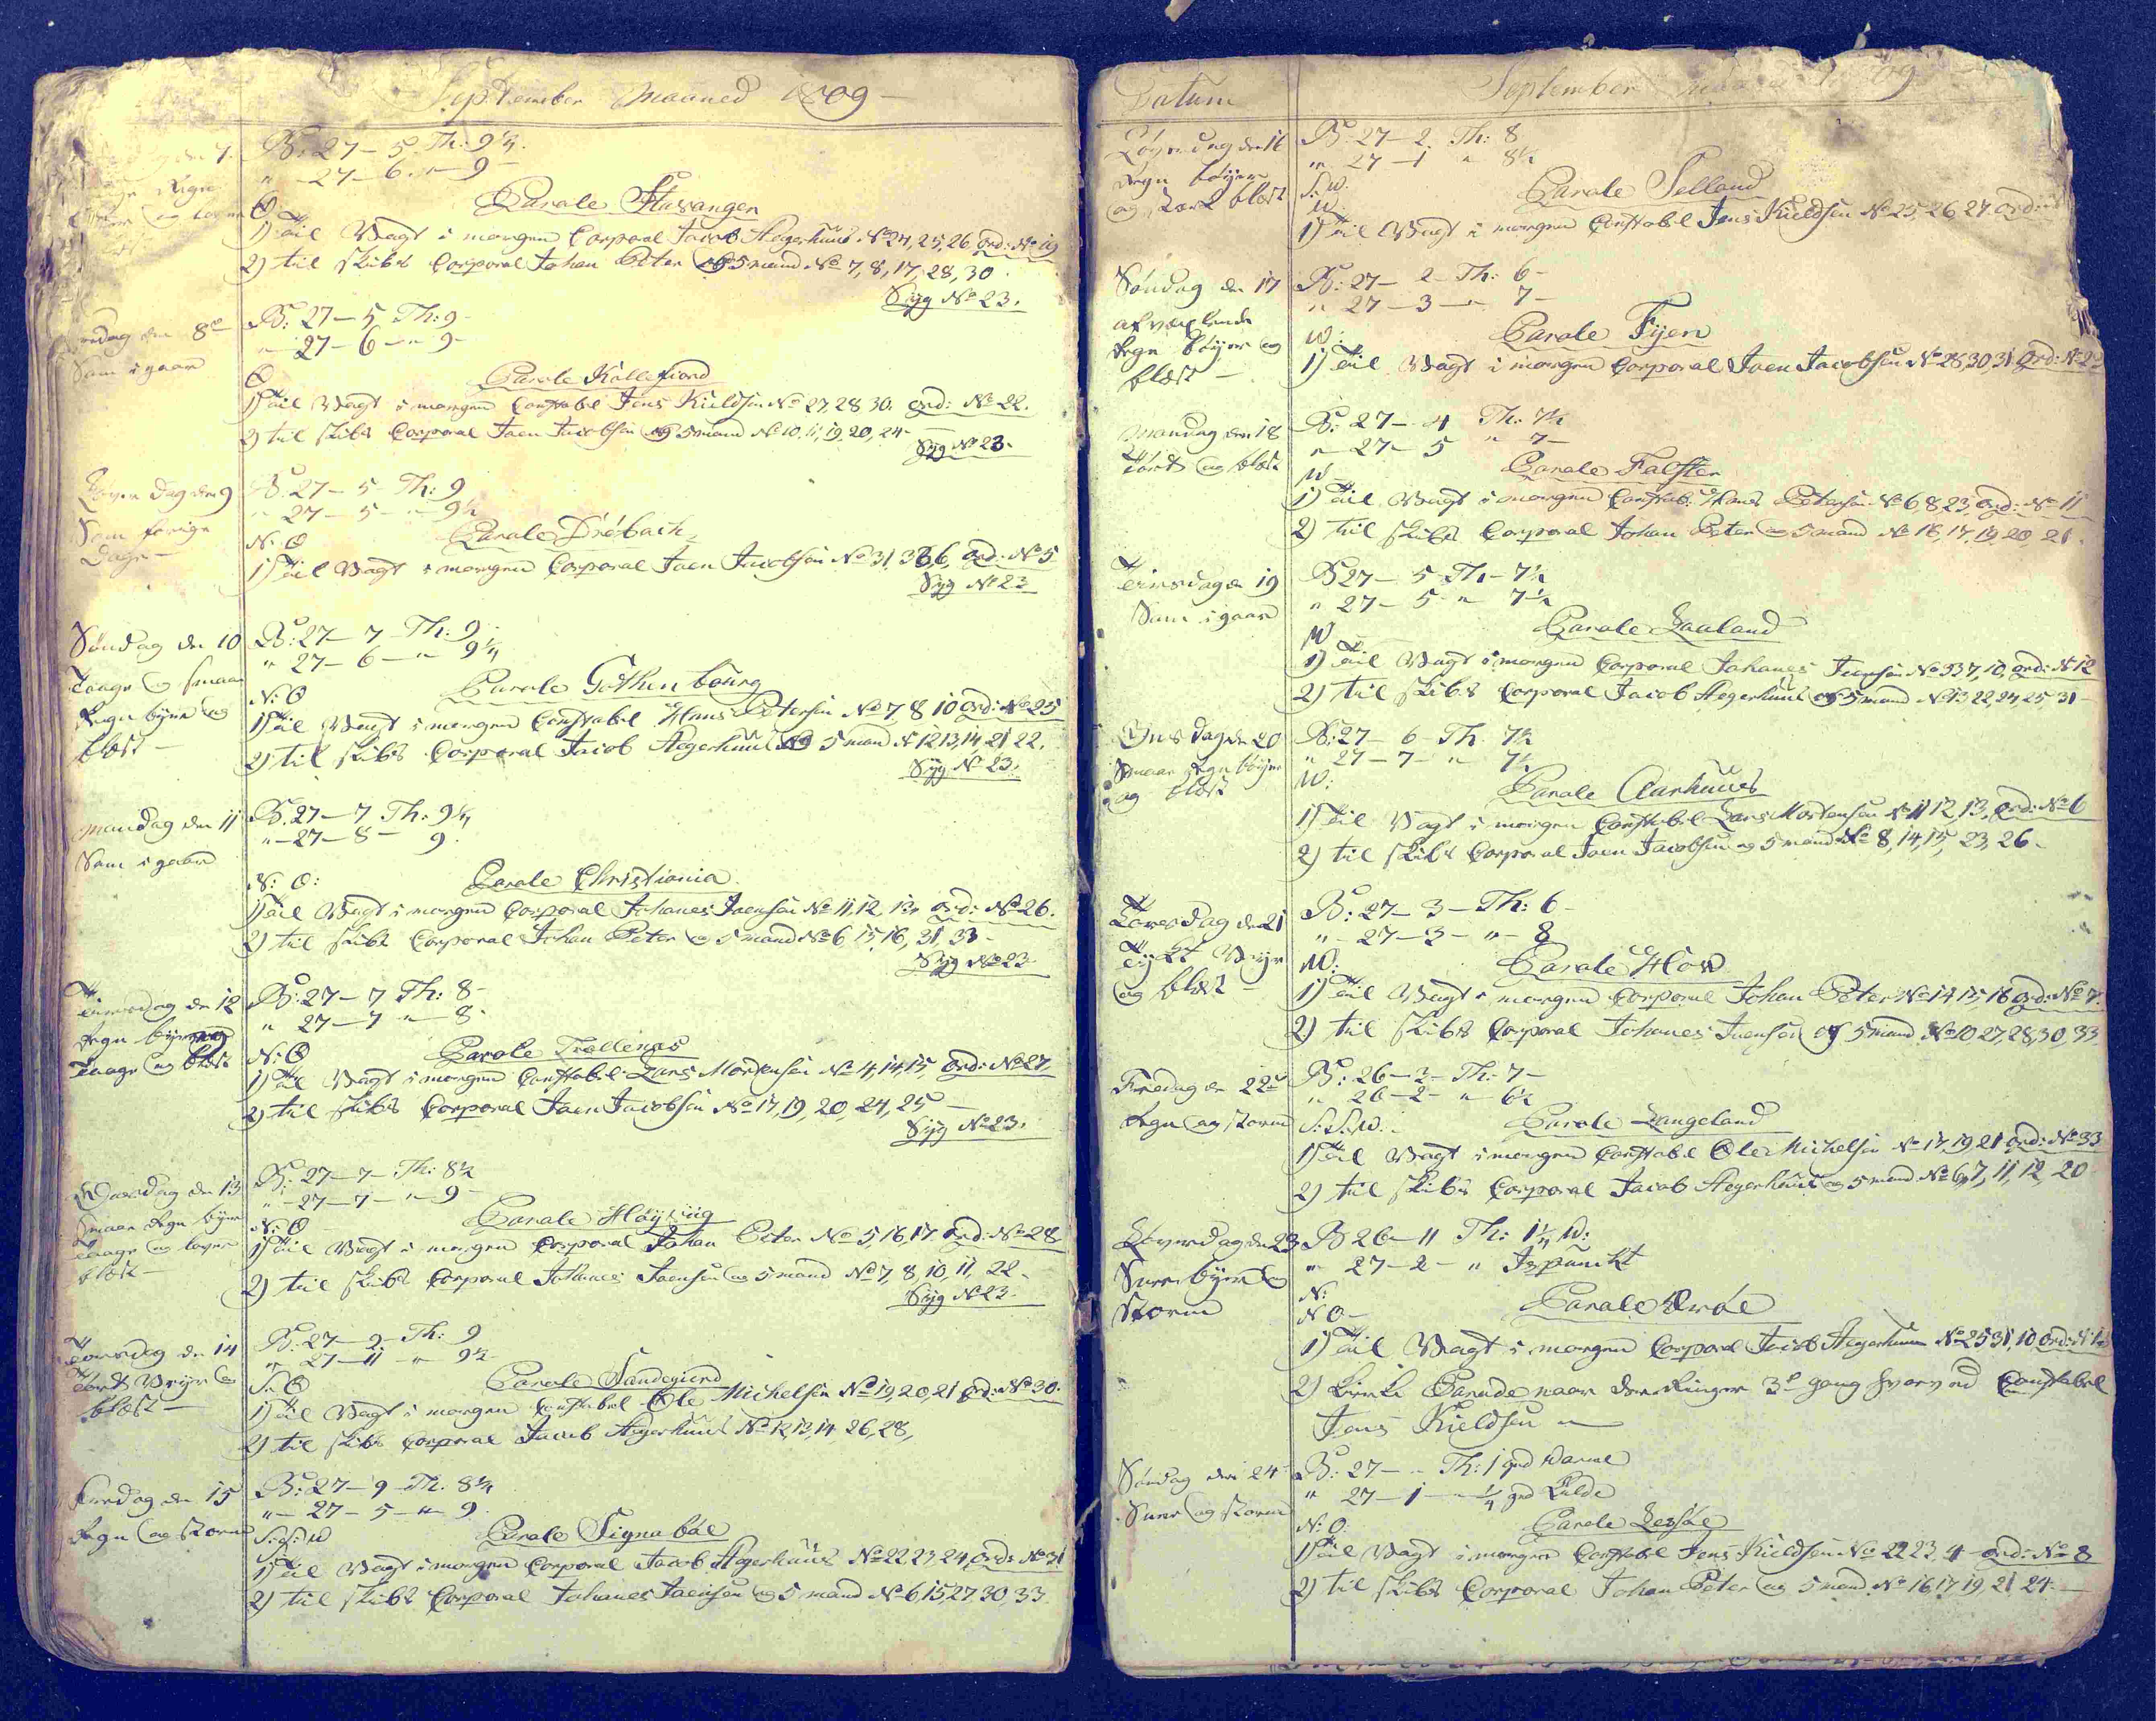 September Maaned 1809 –
den 7. B: 27 – 5 – Th: 9 1/4.
Regn " – 27 – 6 – " – 9 –
O Parole Stavanger
1) Til Vagt i morgen Corporal Jacob Aegerhuus No 24, 25, 26, Ord: No 19
2) til skibs Corporal Johan Peter og 5 mand No 7, 8, 17, 28, 30
Syg No 23.
Fredag den 8de B: 27 – 5 – Th: 9 –
Som i gaar " – 27 – 6 – " – 9 –
O Parole Kallefiord
1) Til Vagt i morgen Constabel Jens Kieldsen No 27, 28 30. Ord: No 22.
2) til skibs Corporal Joen Jacobsen og 5 mand No 10, 11, 19, 20, 24 –
Syg No 23.
Løver dag den 9 B. 27 – 5 – Th: 9
Som forige " 27 – 5 – " – 9 1/2
Dage – N: O Parole Drøbach
1) Til Vagt i morgen Corporal Joen Jacobsen No 31, 33, 6, Ord: No 5
Syg No 23
Søndag den 10 B: 27 – 7 – Th: 9 –
Taage og smaa " 27 – 6 – " 9 1/4
Regn byer og N: O Parole Gothenbourg
1) Til Vagt i morgen Constabel Hans Petersen No 7, 8 10 Ord: No 25
blæst – 2) til skibs Corporal Jacob Aegerhuus og 5 mand No 12 13, 14 21 22.
Syg No 23.
Mandag den 11 B. 27 – 7 Th: 9 1/4
Som i gaar " – 27 – 8 – 9.
N: O: Parole Christiania
1) Til Vagt i morgen Corporal Johanes Joensen No 11, 12, 13, Ord: No 26.
2) til skibs Corporal Johan Peter og 5 mand No 6 15, 16, 31, 33 –
Syg No 23
Tiirsdag den 12 B: 27 – 7 Th: 8 –
Regn byer og " 27 – 7 " – 8 –
Taage og blæst N: O Parole Trellenas
1) Til Vagt i morgen Constabel Lars Mortensen No 4, 14 15, Ord: No 27
2) til skibs Corporal Joen Jacobsen No 17, 19, 20, 24, 25 –
Syg No 23.
Onsdag den 13 B: 27 – 7 – Th: 8 1/2
smaa Regn byer " – 27 – 7 – " – 9 –
Taage og N: O Parole Høysiig
1) Til Vagt i morgen Corporal Johan Peter No 5, 16, 17 Ord: No 28
blæst – 2) til skibs Corporal Johanes Joensen og 5 mand No 7, 8, 10, 11, 22 –
Syg No 23.
Torsdag den 14 B: 27 – 9 – Th: 9
Tørt Veyer og " 27 – 11 – " 9 1/2
blæst – S: O Parole Sandegierd
1) Til Vagt i morgen Constabel Ole Michelsen No 19, 20, 21 Ord: No 30.
2) til skibs Corporal Jacob Aegerhuus No 12, 13, 14 26, 28,
Fredag den 15 B: 27 – 9 – Th. 8 1/4
Regn og storm " – 27 – 5 – " – 9.
S: S: W Parole Signaböe
1) Til Vagt i morgen Corporal Jacob Aegerhuus No 22 23, 24, Ord: No 31
2) til skibs Corporal Johanes Joensen og 5 mand No 6, 15, 27, 30, 33
Datum September 09
Løyerdag den 16 B: 27 – 2. Th: 8
Regn bøyer " 27 – 1 " 8 1/2
og stærk blæst S: W. Parole Selland
W.
1) Til Vagt i morgen Constabel Jens Kieldsen No 25, 26 27. Ord:
Søndag den 17 B: 27 – 2 – Th: 6 –
afvexlende " 27 – 3 – " 7 –
Regn bøyer og W: Parole Fyen
blæst – 1) Til Vagt i morgen Corporal Joen Jacobsen No 28, 30, 31 Ord: No
Mandag den 18 B: 27 – 4 Th: 7 1/2
Tørt og blæst " – 27 – 5 " 7 –
W – Parole Falster
1) Til Vagt i morgen Constab: Hans Petersen No 6, 8 23, Ord: No 11
2) til skibs Corporal Johan Peter og 5 mand No 16, 17, 19, 20, 21.
Tiirsdag den 19 B 27 – 5 – Th – 7 1/2
Som i gaar " 27 – 5 – " 7 1/2
W – Parole Laaland
1) Til Vagt i morgen Corporal Johanes Joensen No 33 7, 10, Ord: No 12
2) til skibs Corporal Jacob Aegerhuus og 5 mand No 13 22, 24, 25 31 –
Onsdag den 20 B: 27 – 6 – Th. 7 1/2
Smaa Regn bøyer " 27 – 7 – " 7 1/2
og blæst W: Parole Aarhuus
1) Til Vagt i morgen Constabel Lars Mortensen No 11 12, 13, Ord: No 6
2) til skibs Corporal Joen Jacobsen og 5 mand No 8, 14, 15, 23, 26 –
Torsdag den 21 B: 27 – 3 – Th: 6 –
Tykt Veyer " – 27 – 3 – " – 8
og blæst – W: Parole How
1) Til Vagt i morgen Corporal Johan Peter No 14 15, 16 Ord: No 7.
2) til skibs Corporal Johanes Joensen og 5 mand No 10 27, 28, 30, 33
Fredag den 22de B: 26 – 3 – Th: 7 –
Regn og storm " 26 – 2 – " 6 1/2
S: S: W: Parole Langeland
1) Til Vagt i morgen Constabel Ole Michelsen No 17, 19, 21 Ord: No 33
2) til skibs Corporal Jacob Aegerhuus og 5 mand No 6, 7, 11, 12, 20
Løverdag den 23 B 26 – 11 Th: 1 1/4 W:
Snee byer og " 27 – 2 – " Ispunckt
storm N: Parole Ærøe
N O –
1) Til Vagt i morgen Corporal Jacob Aegerhuus No 25 31, 10 Ord:
2) Kierke Parade naar der Ringer 3de gang hvorved Constabel
Jens Kieldsen
Søndag den 24 – B: 27 – " Th: 1 grd Varme
Snee og storm " 27 – 1 – " 1/4 grd Kulde
N: O: Parole Lessøe
1) Til Vagt i morgen Constabel Jens Kieldsen No 22 23, 4 – Ord: No 8
2) til skibs Corporal Johan Peter og 5 mand No 16, 17, 19, 21 24 –